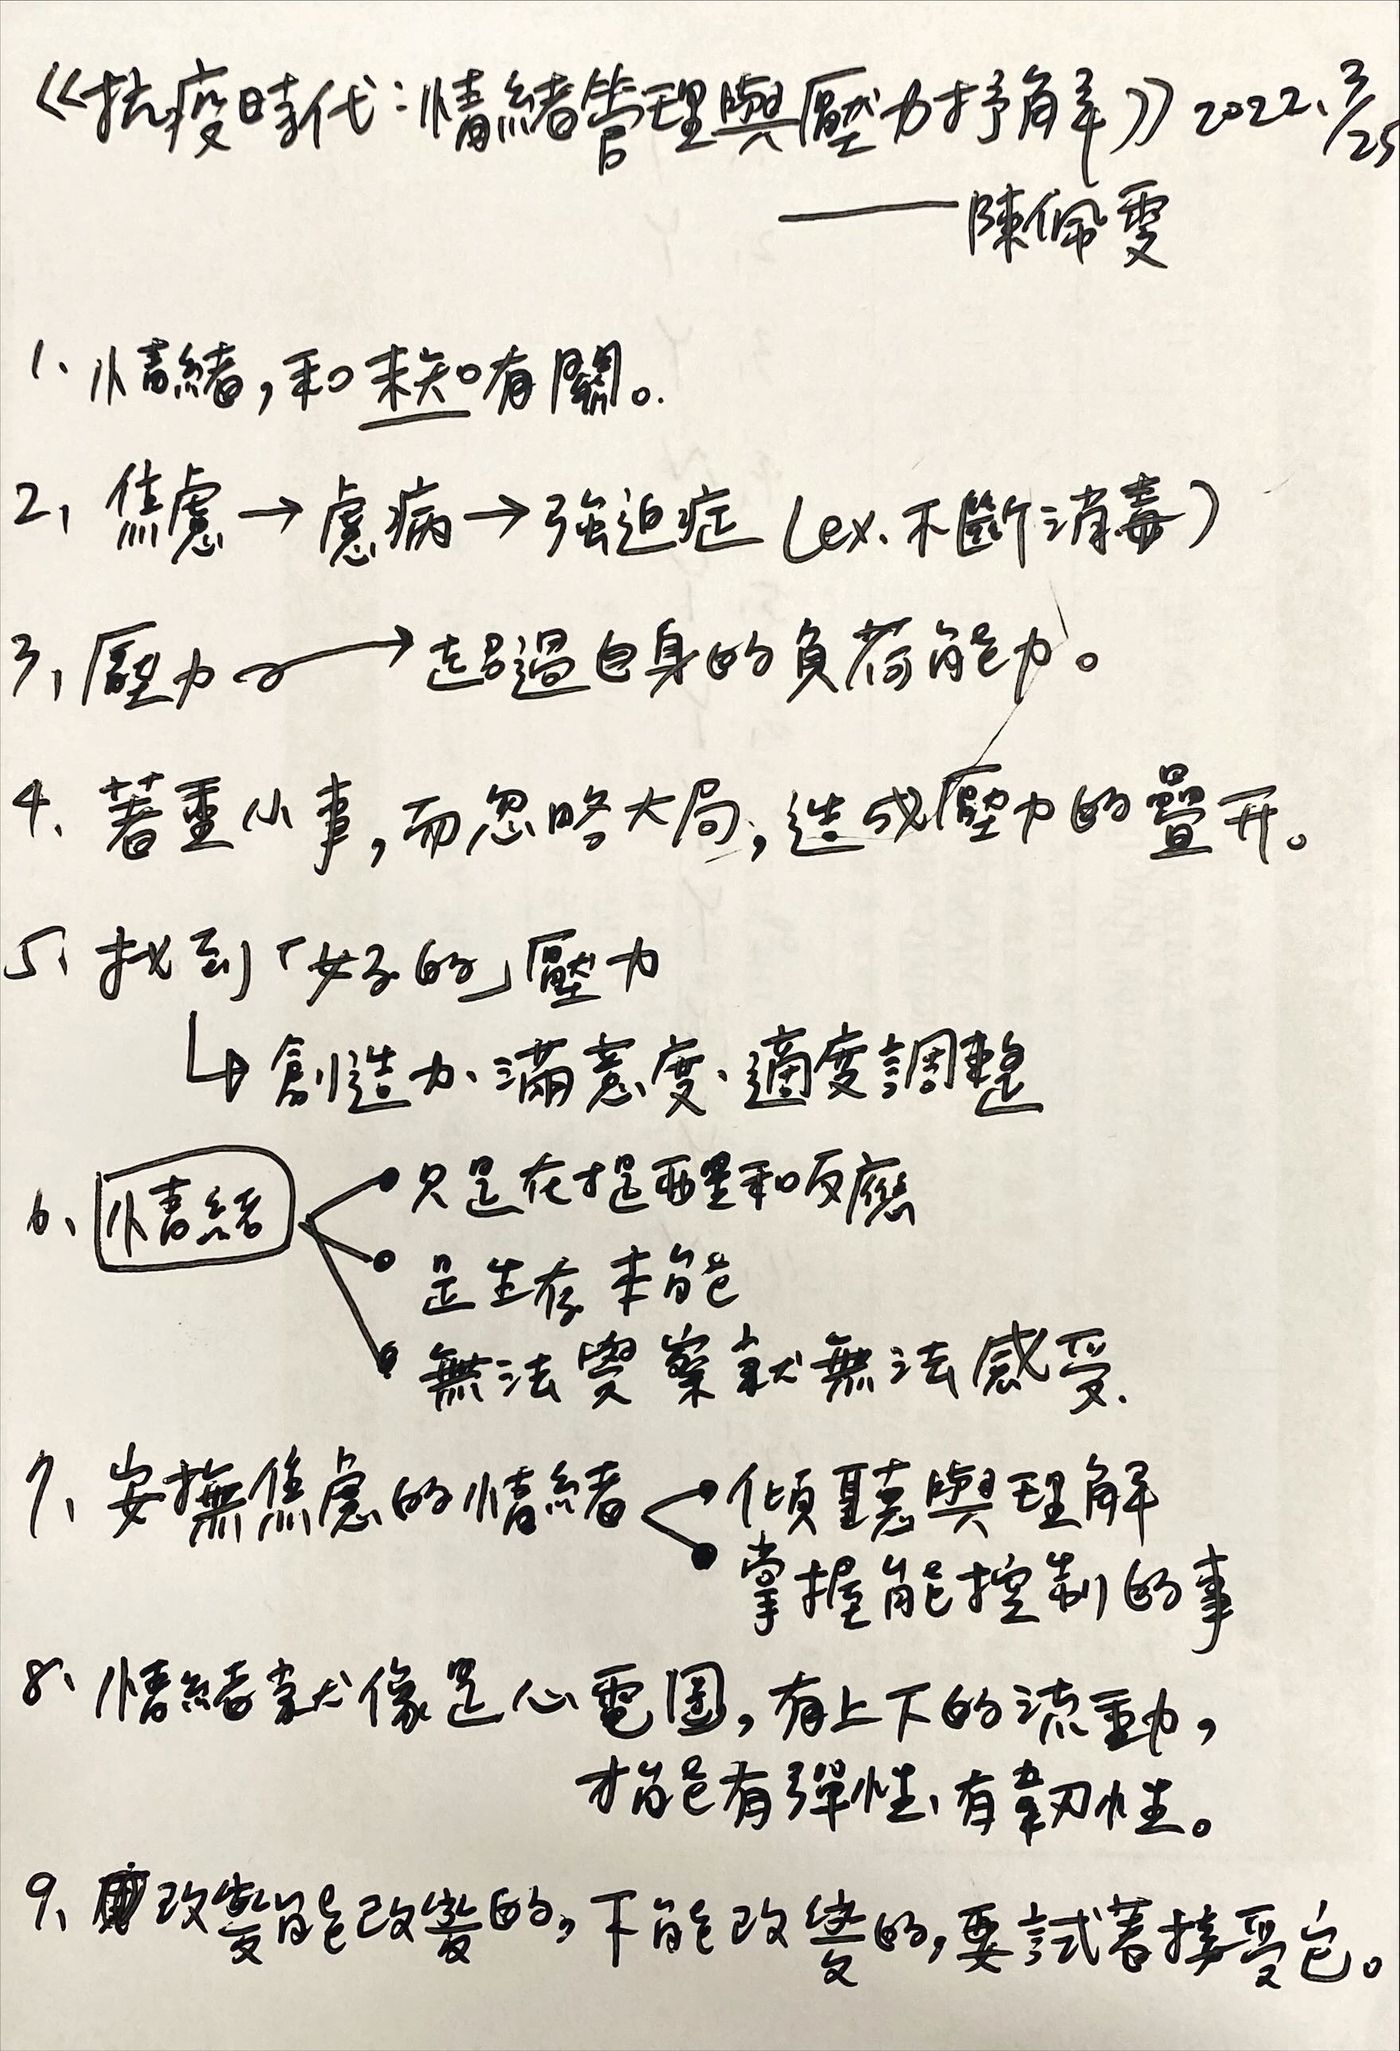 《抗疫時代:情緒管理與壓力抒解》2022.3/25
——陳佩雯
1、情緒,和未知有關。
2、焦慮→慮病→強迫症(ex.不斷消毒)
3、壓力→超過自身的負荷能力。
4、著重小事,而忽略大局,造成壓力的疊升。
5、找到「好的」壓力
↳創造力、滿意度、適度調整
6、情緒
只是在提醒和反應
是生存本能
無法覺察就無法感受.
7、安撫焦慮的情緒
傾聽與理解
掌握能控制的事
8、情緒就像是心電圖,有上下的流動,
才能有彈性、有韌性。
9、改變能改變的,不能改變的,要試著接受它。